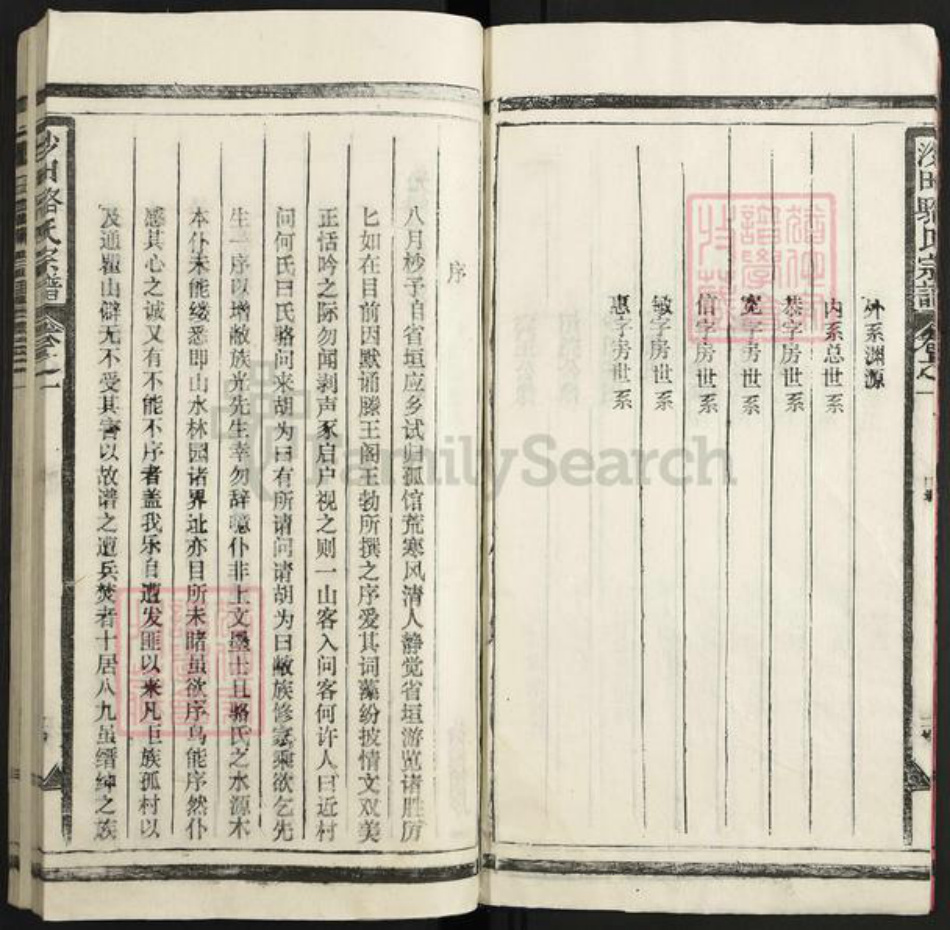 沙田駱氏宗譜
卷之一
外系渊源
内系总世系
恭字房世系
宽字房世系
信字房世系
敏字房世系
惠字房世系
序
八月杪予自省垣应乡试归孤馆荒寒风清人静觉省垣游览诸胜历
匕如在目前因默诵滕王阁王勃所撰之序爱其词藻纷披情文双美
正恬吟之际勿闻剥声豕启户视之则一山客入问客何许人曰近村
问何氏曰氏骆问来胡为曰有所请问请胡为曰敝族修家乘欲乞先
生一序以增敝族光先生幸勿辞噫仆非土文墨士且骆氏之水源木
本仆未能缕悉即山水林园诸界址亦目所未睹虽欲序乌能序然仆
感其心之诚又有不能不序者盖我乐自遭发匪以来凡巨族孤村以
及通瞿山僻无不受其害以故谱之遭兵焚者十居八九虽缙绅之族
沙田骆氏宗譜
卷之一
FamilySearch